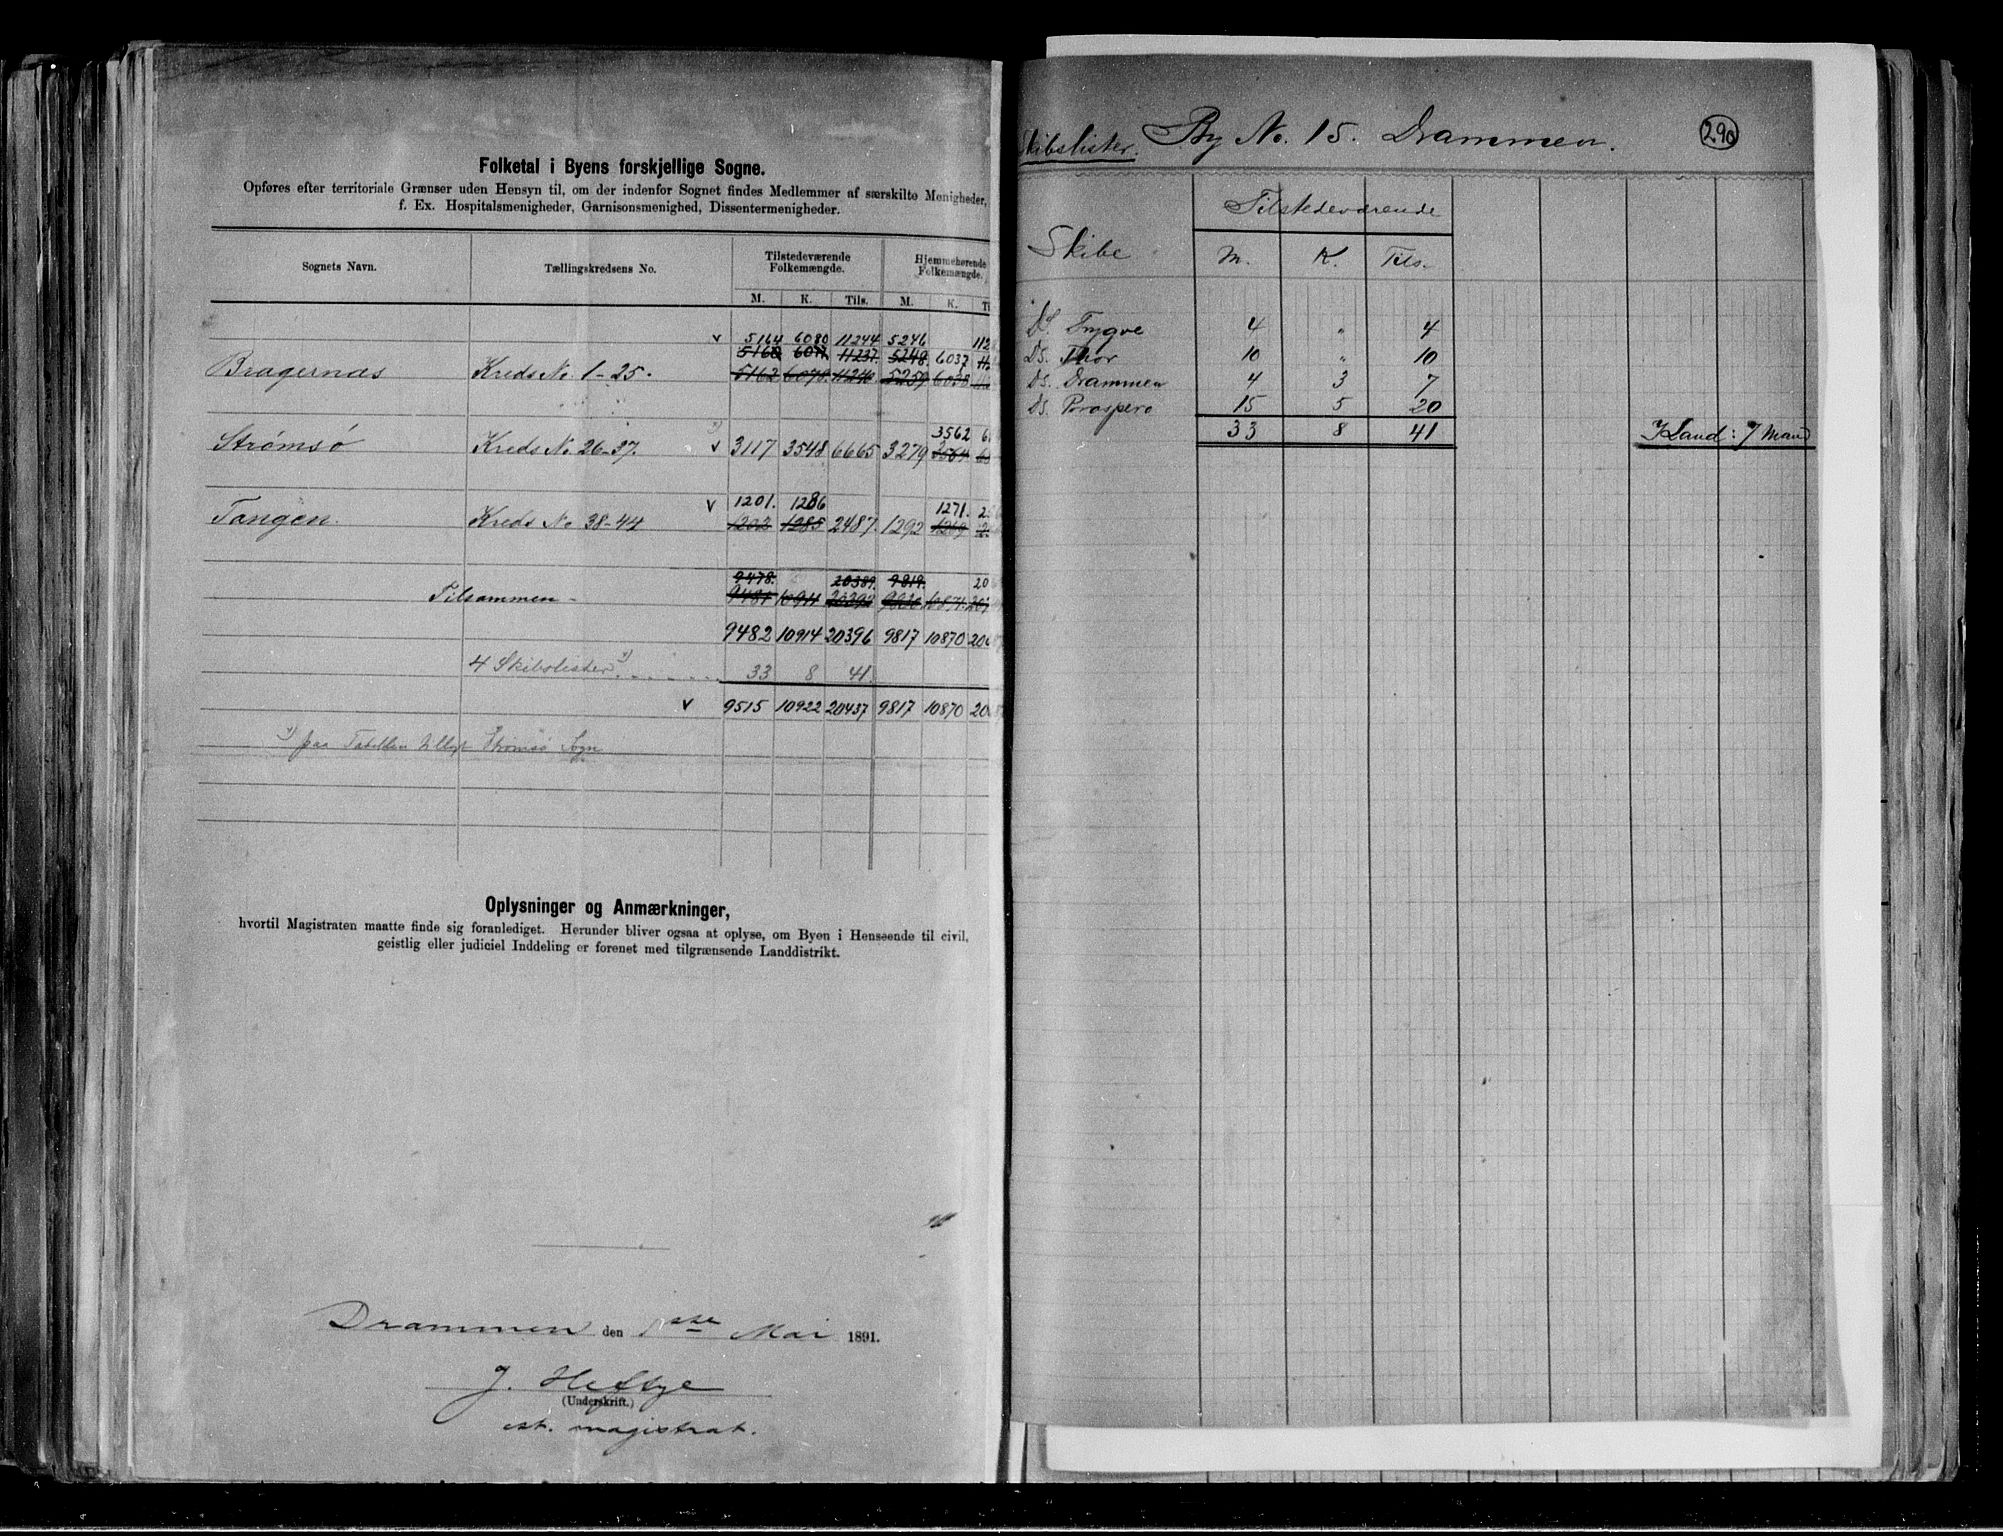 Folketal i Byens forskjellige Sogne.
Opføres efter territoriale Grænser uden Hensyn til, om der indenfor Sognet findes Medlemmer af særskilte Menigheder,
f. Ex. Hospitalsmenigheder, Garnisonsmenighed, Dissentermenigheder.
Sognets Navn. Tællingskredsens No. Tilstedeværende Folkemængde. Hjemmehørende Folkemængde.
M. K. Tils. M. K. Ti
v 5164 6080 11244 5246 112
5160 6077 11237 5248 6037 112
Bragernæs Kreds No. 1-25. 5162 6078 11240 5259 6038
3562 6
Strømsö Kreds No 26-37. v 3117 3548 6665 3279 3564
v 1201. 1286 1271. 2
Tangen. Kreds No 38-44 1202 1285 2487. 1292 1269
9478. 20389. 9819. 20
Tilsammen - 9481 10911 20392 9830 10871. 207
9482 10914 20396 9817 10870 206
4 Skibslister 33 8 41.
v 9515 10922 20437 9817 10870 20
paa Tabellen tillagt Strømsø Sogn
Oplysninger og Anmærkninger,
hvortil Magistraten maatte finde sig foranlediget. Herunder bliver ogsaa at oplyse, om Byen i Henseende til civil,
geistlig eller judiciel Inddeling er forenet med tilgrænsende Landdistrikt.
Drammen den 1ste Mai 1891.
J. Heftye
(Underskrift.)
cst. magistrat.
Skibslister. By No. 15. Drammen. 290
Tilstedeværende
Skibe M. K. Tils.
DS. Trygve 4 " 4
DS. Thor 10 " 10
DS. Drammen 4 3 7
DS. Prospero 15 5 20
33 8 41 I Land: 7 Mand